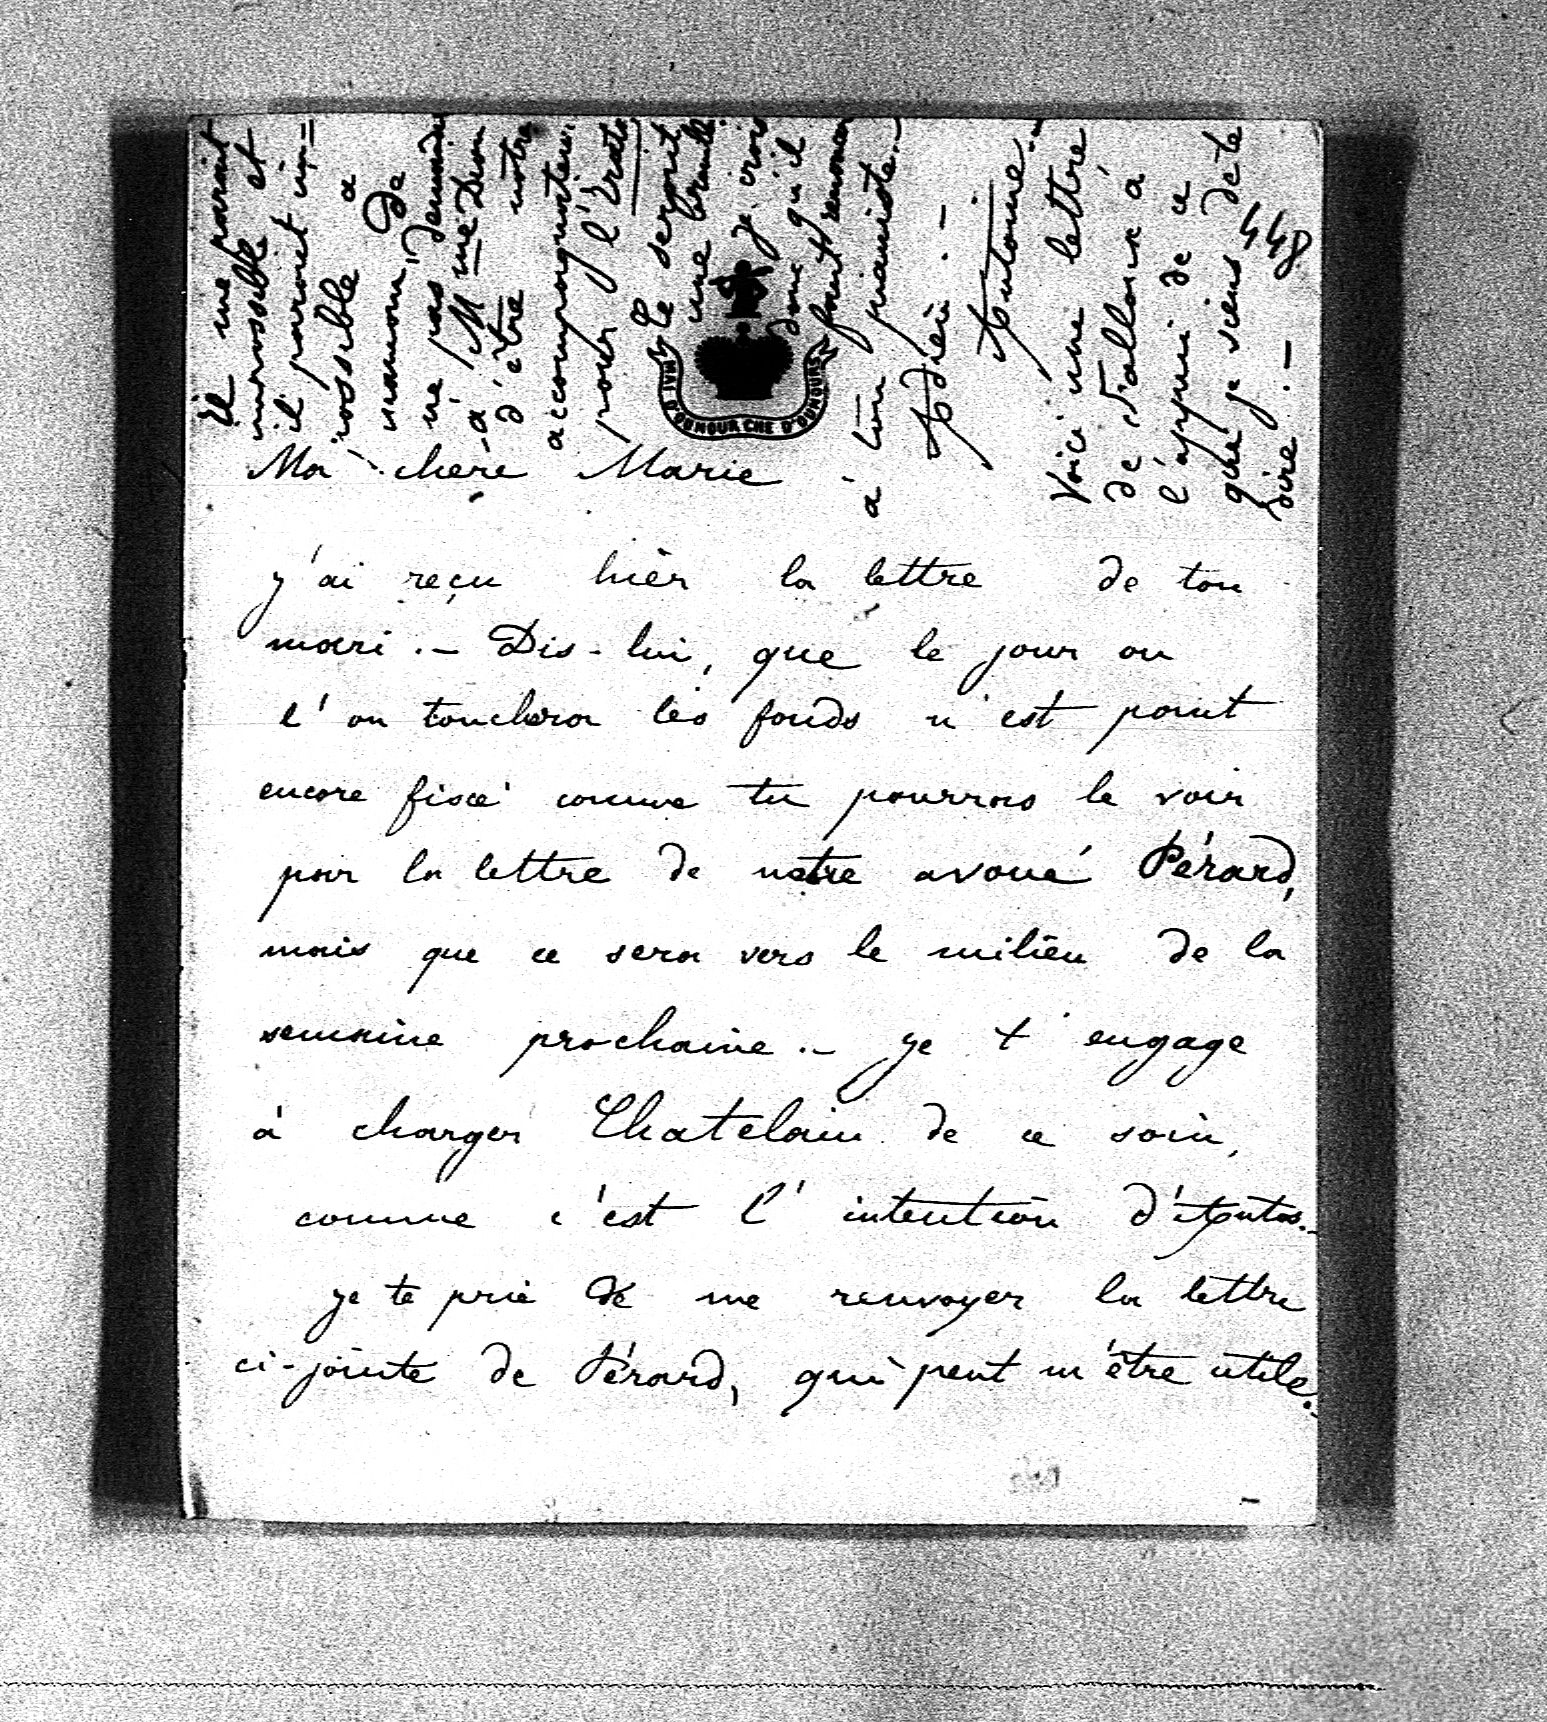 Ma chère Marie
j'ai reçu hier la lettre de ton
mari. — Dis-lui, que le jour ou
l'on touchera les fonds n'est point
encore fixé comme tu pourras le voir
par la lettre de notre avoué Pérard,
mais que ce sera vers le milieu de la
semaine prochaine. — je t'engage
à charger Chatelain de ce soin,
comme c'est l'intention d'Antos. —
je te prie de me renvoyer la lettre
ci-jointe de Pérard, qui peut m'être utile. —
Il me parait
impossible et
il parait im=
possible a
maman, de
ne pas demander
à Mme Dion
d'être notre
accompagnateur
pour l'Erato
Ce serait
une
je crois
donc qu'il
faut renoncer
a ton pianiste. —
Adieu. —
Antoine. —
Voici une lettre
de Falloux à
l'appui de ce
que je viens de te
dire. —
448
MAI D'OUNOUR CHE D'OUNOURS